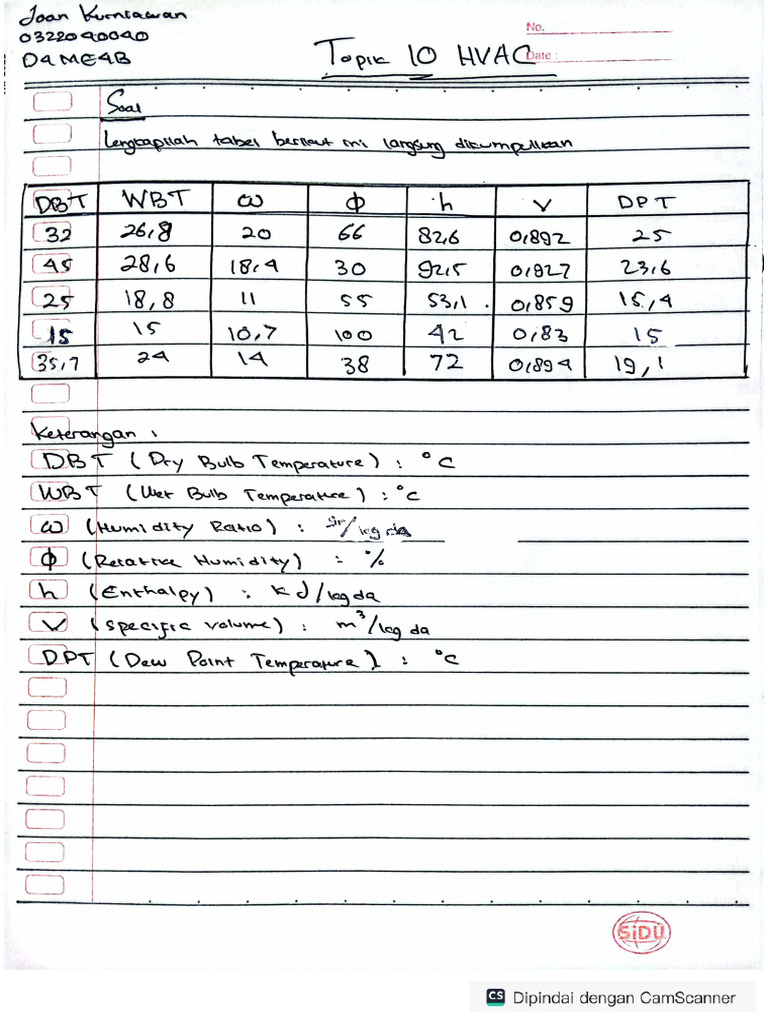 Joan Kurniawan
No.
0322040040
D4 ME4B
Topik 10 HVAC
Date :
Soal
Lengkapilah tabel berikut ini langsung dikumpulkan
DBT WBT ω ϕ h v DPT
32 26,8 20 66 82,6 0,892 25
45 28,6 18,4 30 92,5 0,927 23,6
25 18,8 11 55 53,1 0,859 15,4
15 15 10,7 100 42 0,83 15
35,7 24 14 38 72 0,894 19,1
Keterangan :
DBT (Dry Bulb Temperature) : °C
WBT (Wet Bulb Temperature) : °C
ω (Humidity Ratio) : gr/kg da
ϕ (Relative Humidity) : %
h (Enthalpy) : kJ/kg da
v (specific volume) : m³/kg da
DPT (Dew Point Temperature) : °C
SiDU
CS Dipindai dengan CamScanner